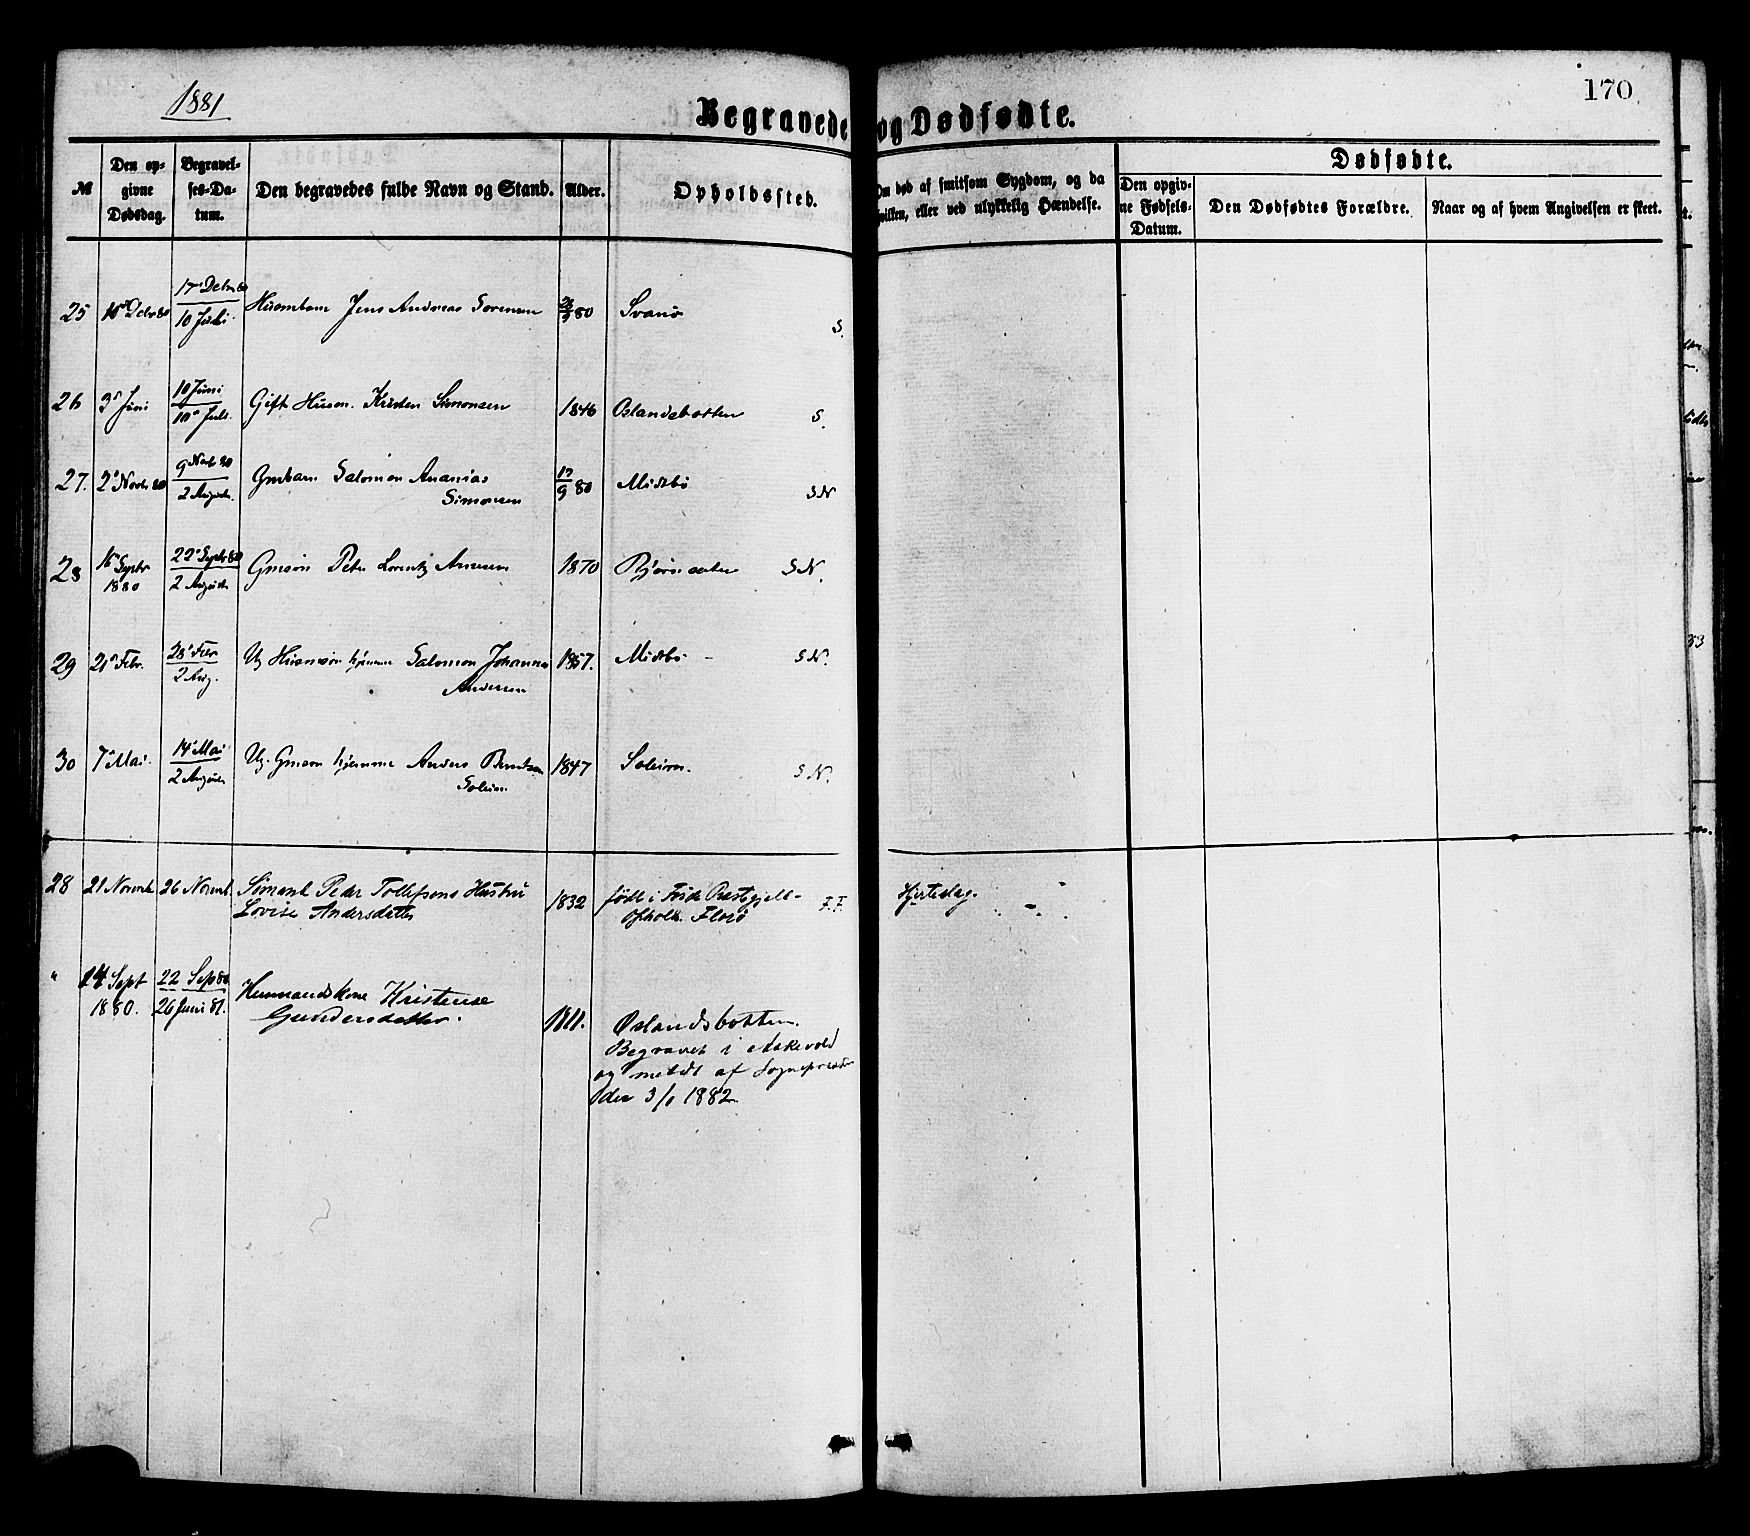 1881
170
Begravede og Dødfødte.
№
Den op-
givne
Dødsdag.
Begravel-
ses-Da-
tum.
Den begravedes fulde Navn og Stand.
Alder.
Opholdssted.
Om død af smitsom Sygdom, og da
hvilken, eller ved ulykkelig Hændelse.
Dødfødte.
Den opgiv-
ne Fødsels-
Datum.
Den Dødfødtes Forældre.
Naar og af hvem Angivelsen er skeet.
25 10 Decbr 80 17 Decbr 80 / 10 Juli. Husmbarn Jens Andreas Sørensen 80 Svanø S.
26 3 Juni 10 Juni / 10 Juli Gift Husm. Kristen Simonsen 1846 Øslandsbotten S.
27. 2 Novb. 80 9 Novb 80 / 2 August. Gmbarn Salomon Ananias
Simonsen 80 Midtbø SN
28 16 Septbr
1880 22 Septbr 80 / 2 August Gmsøn Peter Lorentz Ansen 1870 SN.
29 21 Febr. 28 Febr / 2 Aug. Ug Husmsøn hjemme Salomon Johannes
Andersen 1857. Midtbø SN.
30 7 Mai. 14 Mai / 2 August Ug. Gmsøn hjemme Anders Berntsen
Solheim 1847 Solheim. SN.
28 21 Novemb 26 Novemb. Sømand Peder Tollefsens Hustru
Lovise Andersdatter 1832 født i Førde Præstegjeld-
Opholdt. Florø F.F. Hjerteslag.
" 14 Sept
1880. 22 Sep 80
26 Juni 81. Husmandskone Kristense
Gundersdatter. 1811. Øslandsbotten.
Begravet i Askevold
og meldt af Sognepræsten
den 3/1 1882.